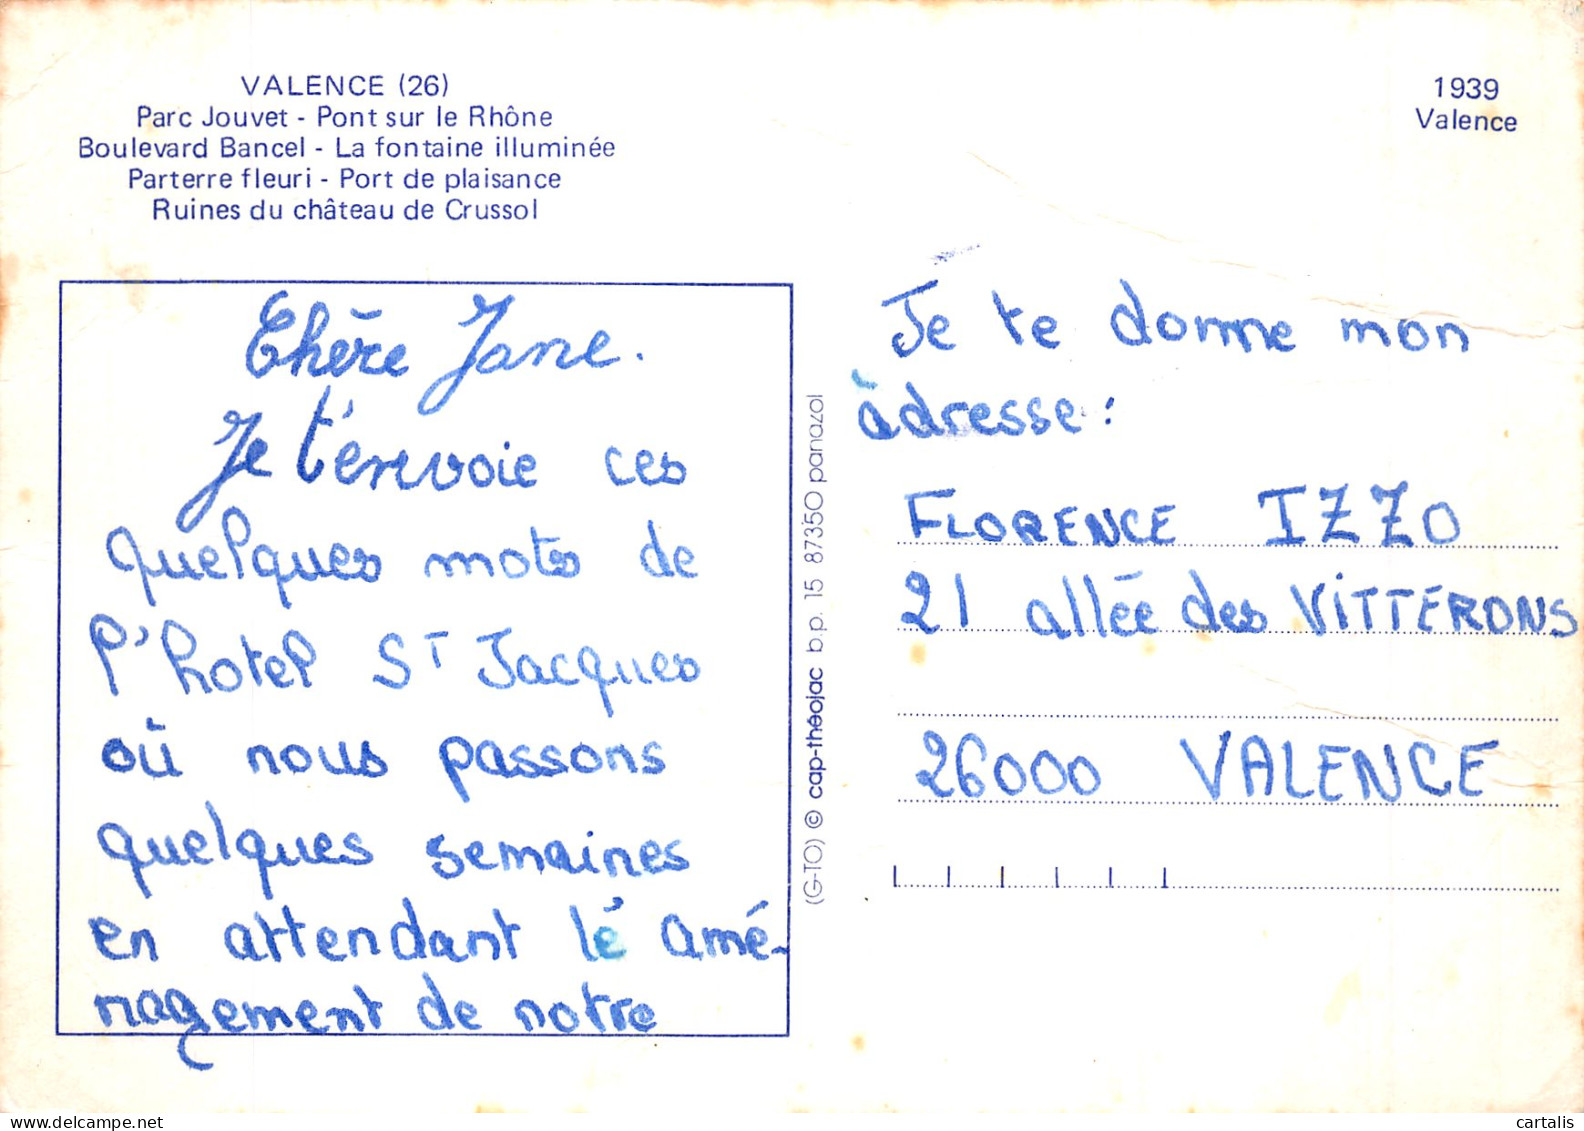 VALENCE (26)
Parc Jouvet - Pont sur le Rhône
Boulevard Bancel - La fontaine illuminée
Parterre fleuri - Port de plaisance
Ruines du château de Crussol
1939
Valence
Chère Jane.
Je t'envoie ces
quelques mots de
l'hotel ST Jacques
où nous passons
quelques semaines
en attendant lé amé-
nagement de notre
(G-TO) © cap-théojac b.p. 15 87350 panazol
Je te donne mon
àdresse :
FLORENCE IZZO
21 allée des VITTERONS
26000 VALENCE
cartalis.com